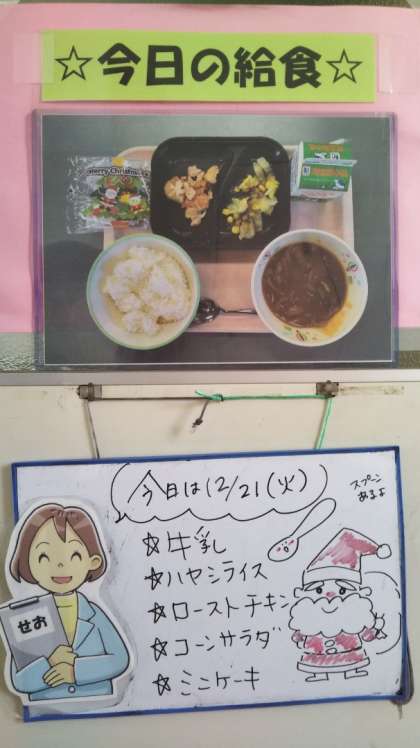 ☆今日の給食☆
Merry Christmas
今日は12/21(火)
スプーン
あるよ
☆牛乳
☆ハヤシライス
☆ローストチキン
☆コーンサラダ
☆ミニケーキ
せお